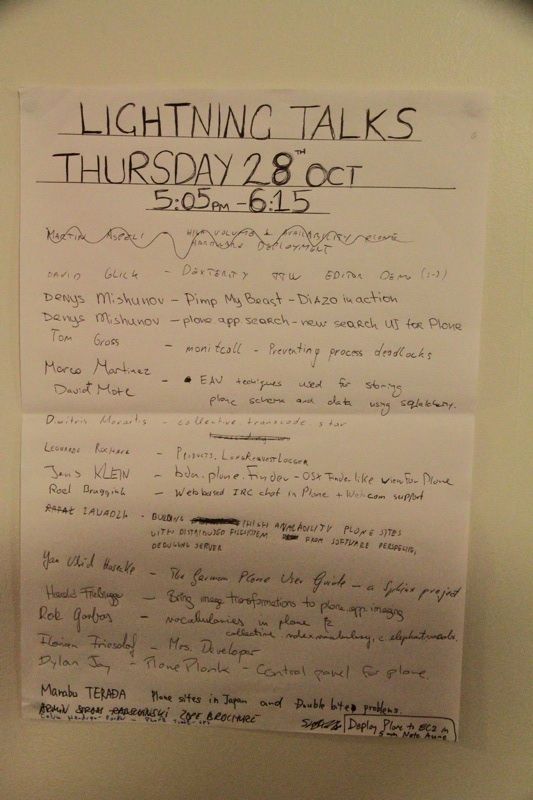 LIGHTNING TALKS
THURSDAY 28TH OCT
5:05PM - 6:15
MARTIN ASPELI - HIGH VOLUME & AVAILABILITY PLONE
HARDWARE DEPLOYMENT
DAVID GLICK - DEXTERITY TTW EDITOR DEMO
Denys Mishunov - Pimp My Beast - Diazo in action
Denys Mishunov - plone.app.search - new search UI for Plone
Tom Gross - monitcall - Preventing process deadlocks
Marco Martinez
David Mote - EAV techiques used for storing
plone schema and data using sqlalchemy.
Dimitris Moraitis - collective transcode.star
LEONARDO ROCHAEL - PRODUCTS.LONGREQUESTLOGGER
Jens KLEIN - bda.plone.finder - OSX Finder like view for Plone
Roel Bruggink - Web based IRC chat in Plone + Webcom support
- BUILDING HIGH AVAILABILITY PLONE SITES
WITH DISTRIBUTED FILESYSTEM FROM SOFTWARE PERSPECTIVE,
DEBUGING SERVER
Jan Ulrich Hasecke - The German Plone User Guide - a Sphinx project
Harald Friessnegger - Bring image transformations to plone.app.imaging
Rok Garbas - vocabularies in plone
Florian Friesdorf - Mrs. Developer
Dylan Jay - PlonePlonk - Control panel for plone.
Manabu TERADA Plone sites in Japan and Double byte problems.
ARMIN ZOPE BROCHURE
Deploy Plone to EC2 in
5 min Nate Aune